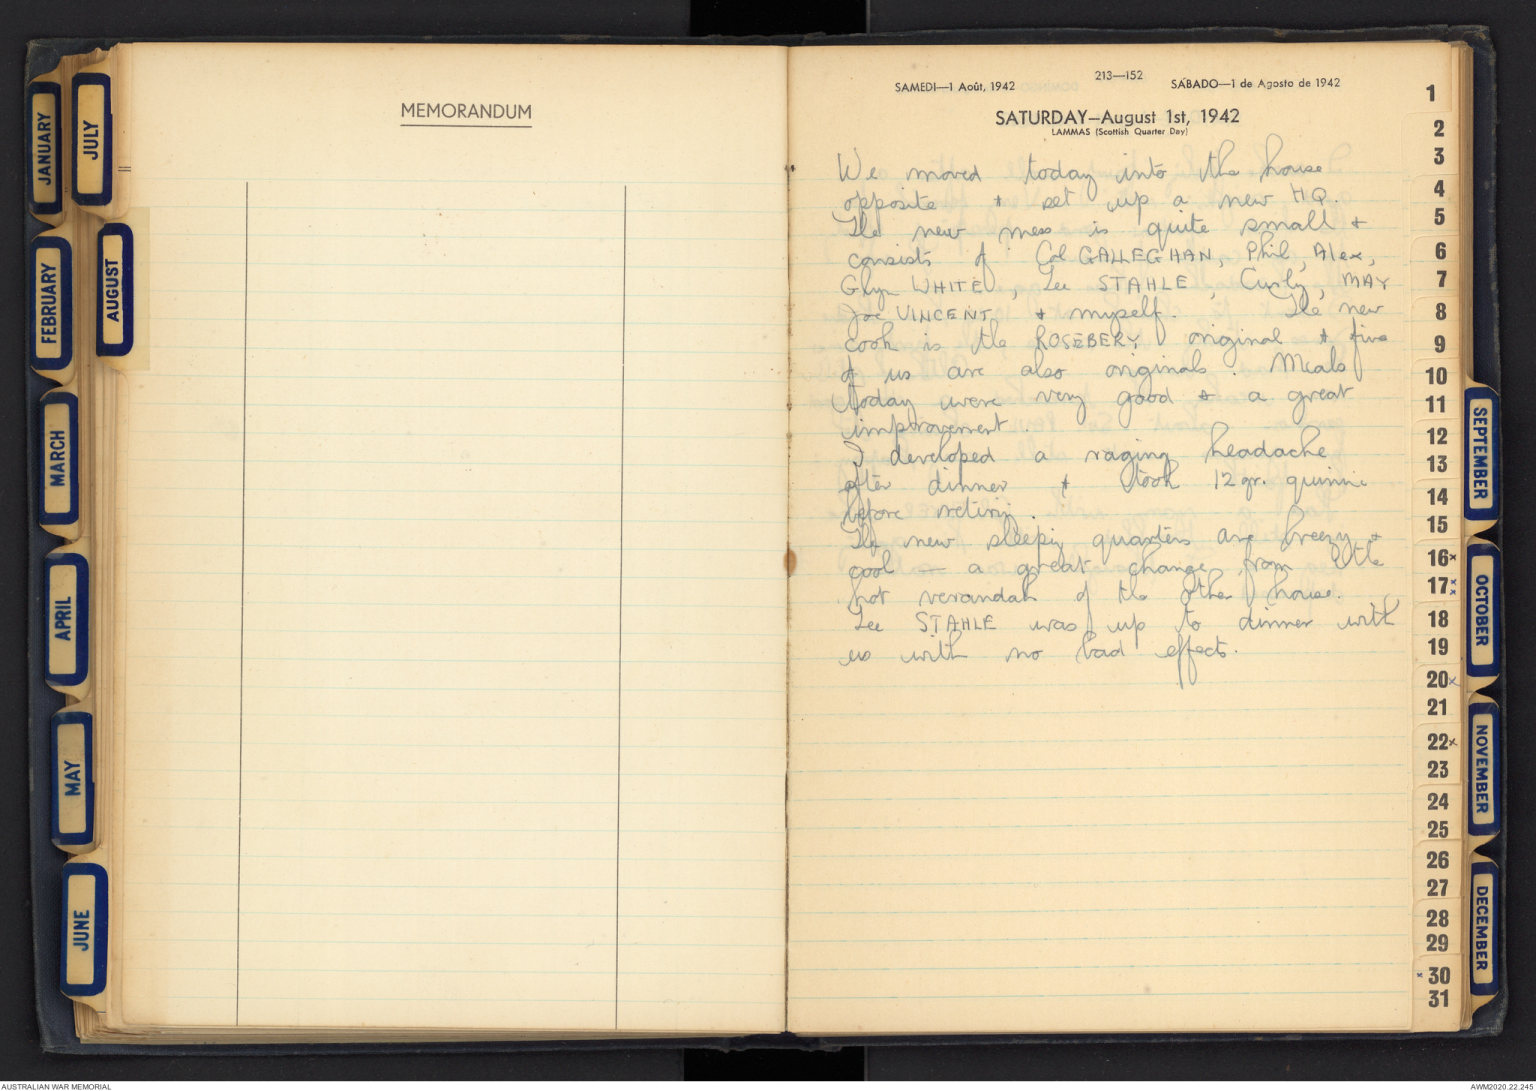 MEMORANDUM
JANUARY
JULY
FEBRUARY
AUGUST
MARCH
APRIL
MAY
JUNE
213—152
SAMEDI—1 Août, 1942
SÁBADO—1 de Agosto de 1942
SATURDAY—August 1st, 1942
LAMMAS (Scottish Quarter Day)
We moved today into the house
opposite & set up a new HQ.
The new mess is quite small &
consists of Col GALLEGHAN, Phil, Alex,
Glyn WHITE, Lee STAHLE, Curly, MAY
Joe VINCENT & myself. The new
cook is the ROSEBERY original & five
of us are also originals. Meals
today were very good & a great
improvement.
I developed a raging headache
after dinner & took 12 gr. quinine
before retiring.
The new sleeping quarters are breezy &
cool — a great change from the
hot verandah of the other house.
Lee STAHLE was up to dinner with
us with no bad effects.
1
2
3
4
5
6
7
8
9
10
11
12
13
14
15
16x
17
18
19
20x
21
22x
23
24
25
26
27
28
29
x 30
31
SEPTEMBER
OCTOBER
NOVEMBER
DECEMBER
AUSTRALIAN WAR MEMORIAL
AWM2020.22.245